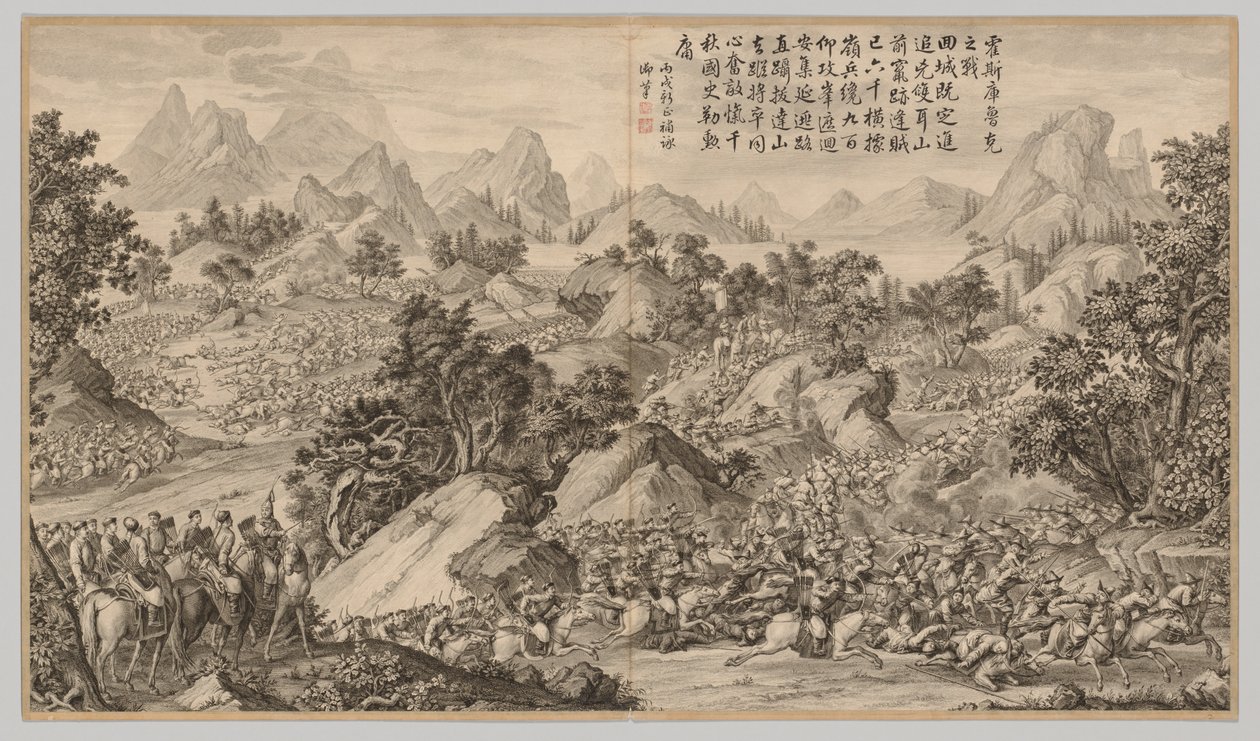 霍斯庫魯克
之戰
囬城既定進
追兇雙耳山
前竄跡逢賊
已六千橫據
嶺兵纔九百
仰攻峯遮迴
安集延遁路
直躡拔達山
去蹤將卒同
心奮敵愾千
秋國史勒勲
庸
丙戌新正補詠
御筆